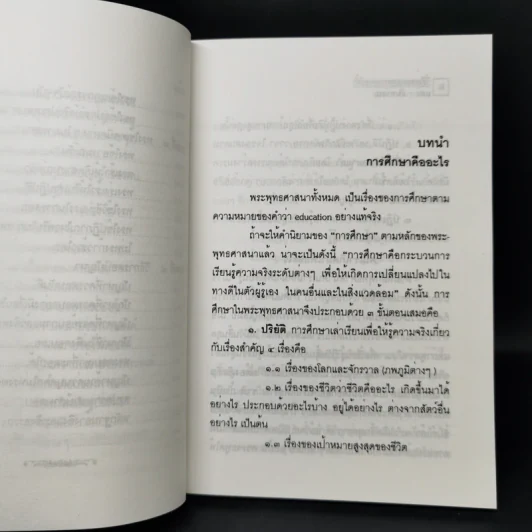 บทนำ
การศึกษาคืออะไร
พระพุทธศาสนาทั้งหมด เป็นเรื่องของการศึกษาตาม
ความหมายของคำว่า education อย่างแท้จริง
ถ้าจะให้คำนิยามของ “การศึกษา” ตามหลักของพระ-
พุทธศาสนาแล้ว น่าจะเป็นดังนี้ “การศึกษาคือกระบวนการ
เรียนรู้ความจริงระดับต่างๆ เพื่อให้เกิดการเปลี่ยนแปลงไปใน
ทางดีในตัวผู้รู้เอง ในคนอื่นและในสิ่งแวดล้อม” ดังนั้น การ
ศึกษาในพระพุทธศาสนาจึงประกอบด้วย ๓ ขั้นตอนเสมอคือ
๑. ปริยัติ การศึกษาเล่าเรียนเพื่อให้รู้ความจริงเกี่ยว
กับเรื่องสำคัญ ๔ เรื่องคือ
๑.๑ เรื่องของโลกและจักรวาล (ภพภูมิต่างๆ)
๑.๒ เรื่องของชีวิตว่าชีวิตคืออะไร เกิดขึ้นมาได้
อย่างไร ประกอบด้วยอะไรบ้าง อยู่ได้อย่างไร ต่างจากสัตว์อื่น
อย่างไร เป็นต้น
๑.๓ เรื่องของเป้าหมายสูงสุดของชีวิต